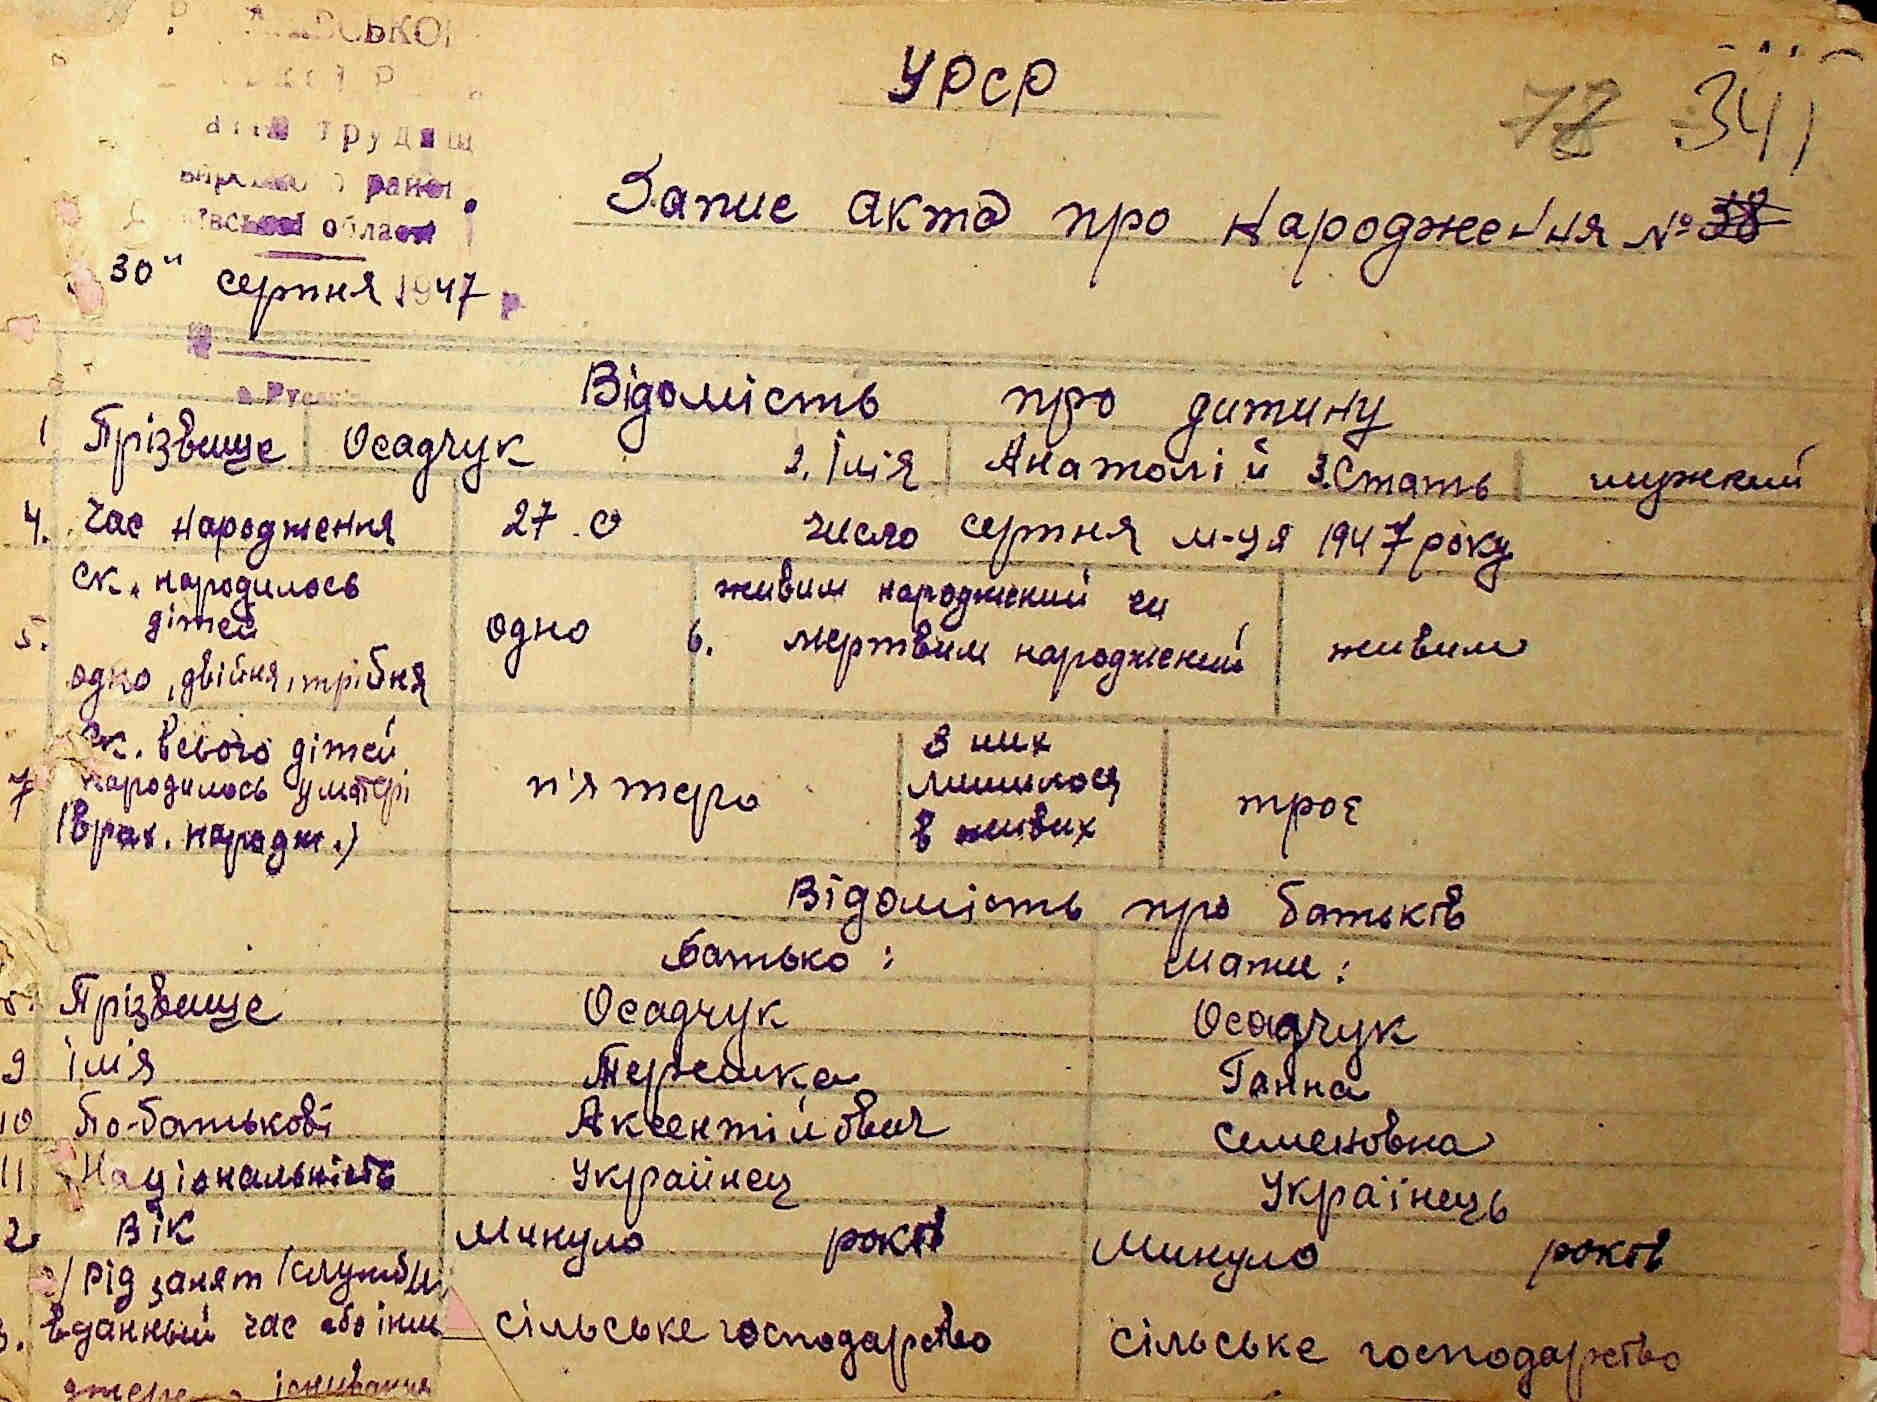 УРСР
341
трудящ
області
Запис акта про народження № 38
30" серпня 1947 р
Відомість про дитину
1 Прізвище Осадчук 2. Імія Анатолій 3. Стать мужкий
4. Час народження 27.0 число серпня м-ця 1947 року
5. ск. народилось дітей одно, двійня, трійня одно 6. живим народжений чи мертвим народжений живим
7 ск. всього дітей народилось у матері (врах. народж.) п'ятеро З них лишилося в живих троє
Відомість про батьків
Батько: Мати:
8. Прізвище Осадчук Осадчук
9 ім'я Терешка Ганна
10 По-батькові Аксентійович Семеновна
11 Національність Украйнец Українець
2. Вік Минуло років Минуло років
а) Рід занят (служби)
3. в данный час або інш сільське господарство сільське господарство
існування